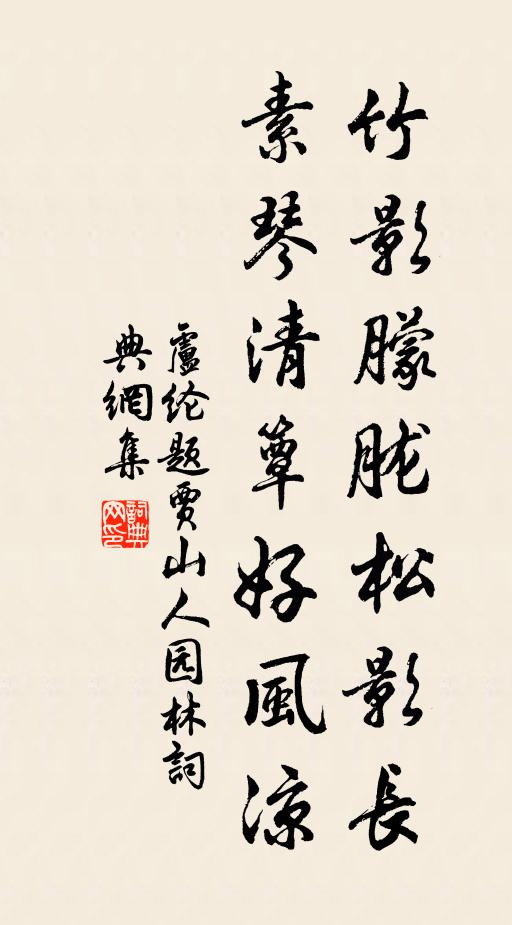 竹影朦朧松影長
素琴清簟好風涼
盧纶题賈山人园林詞
典網集
詞典网印